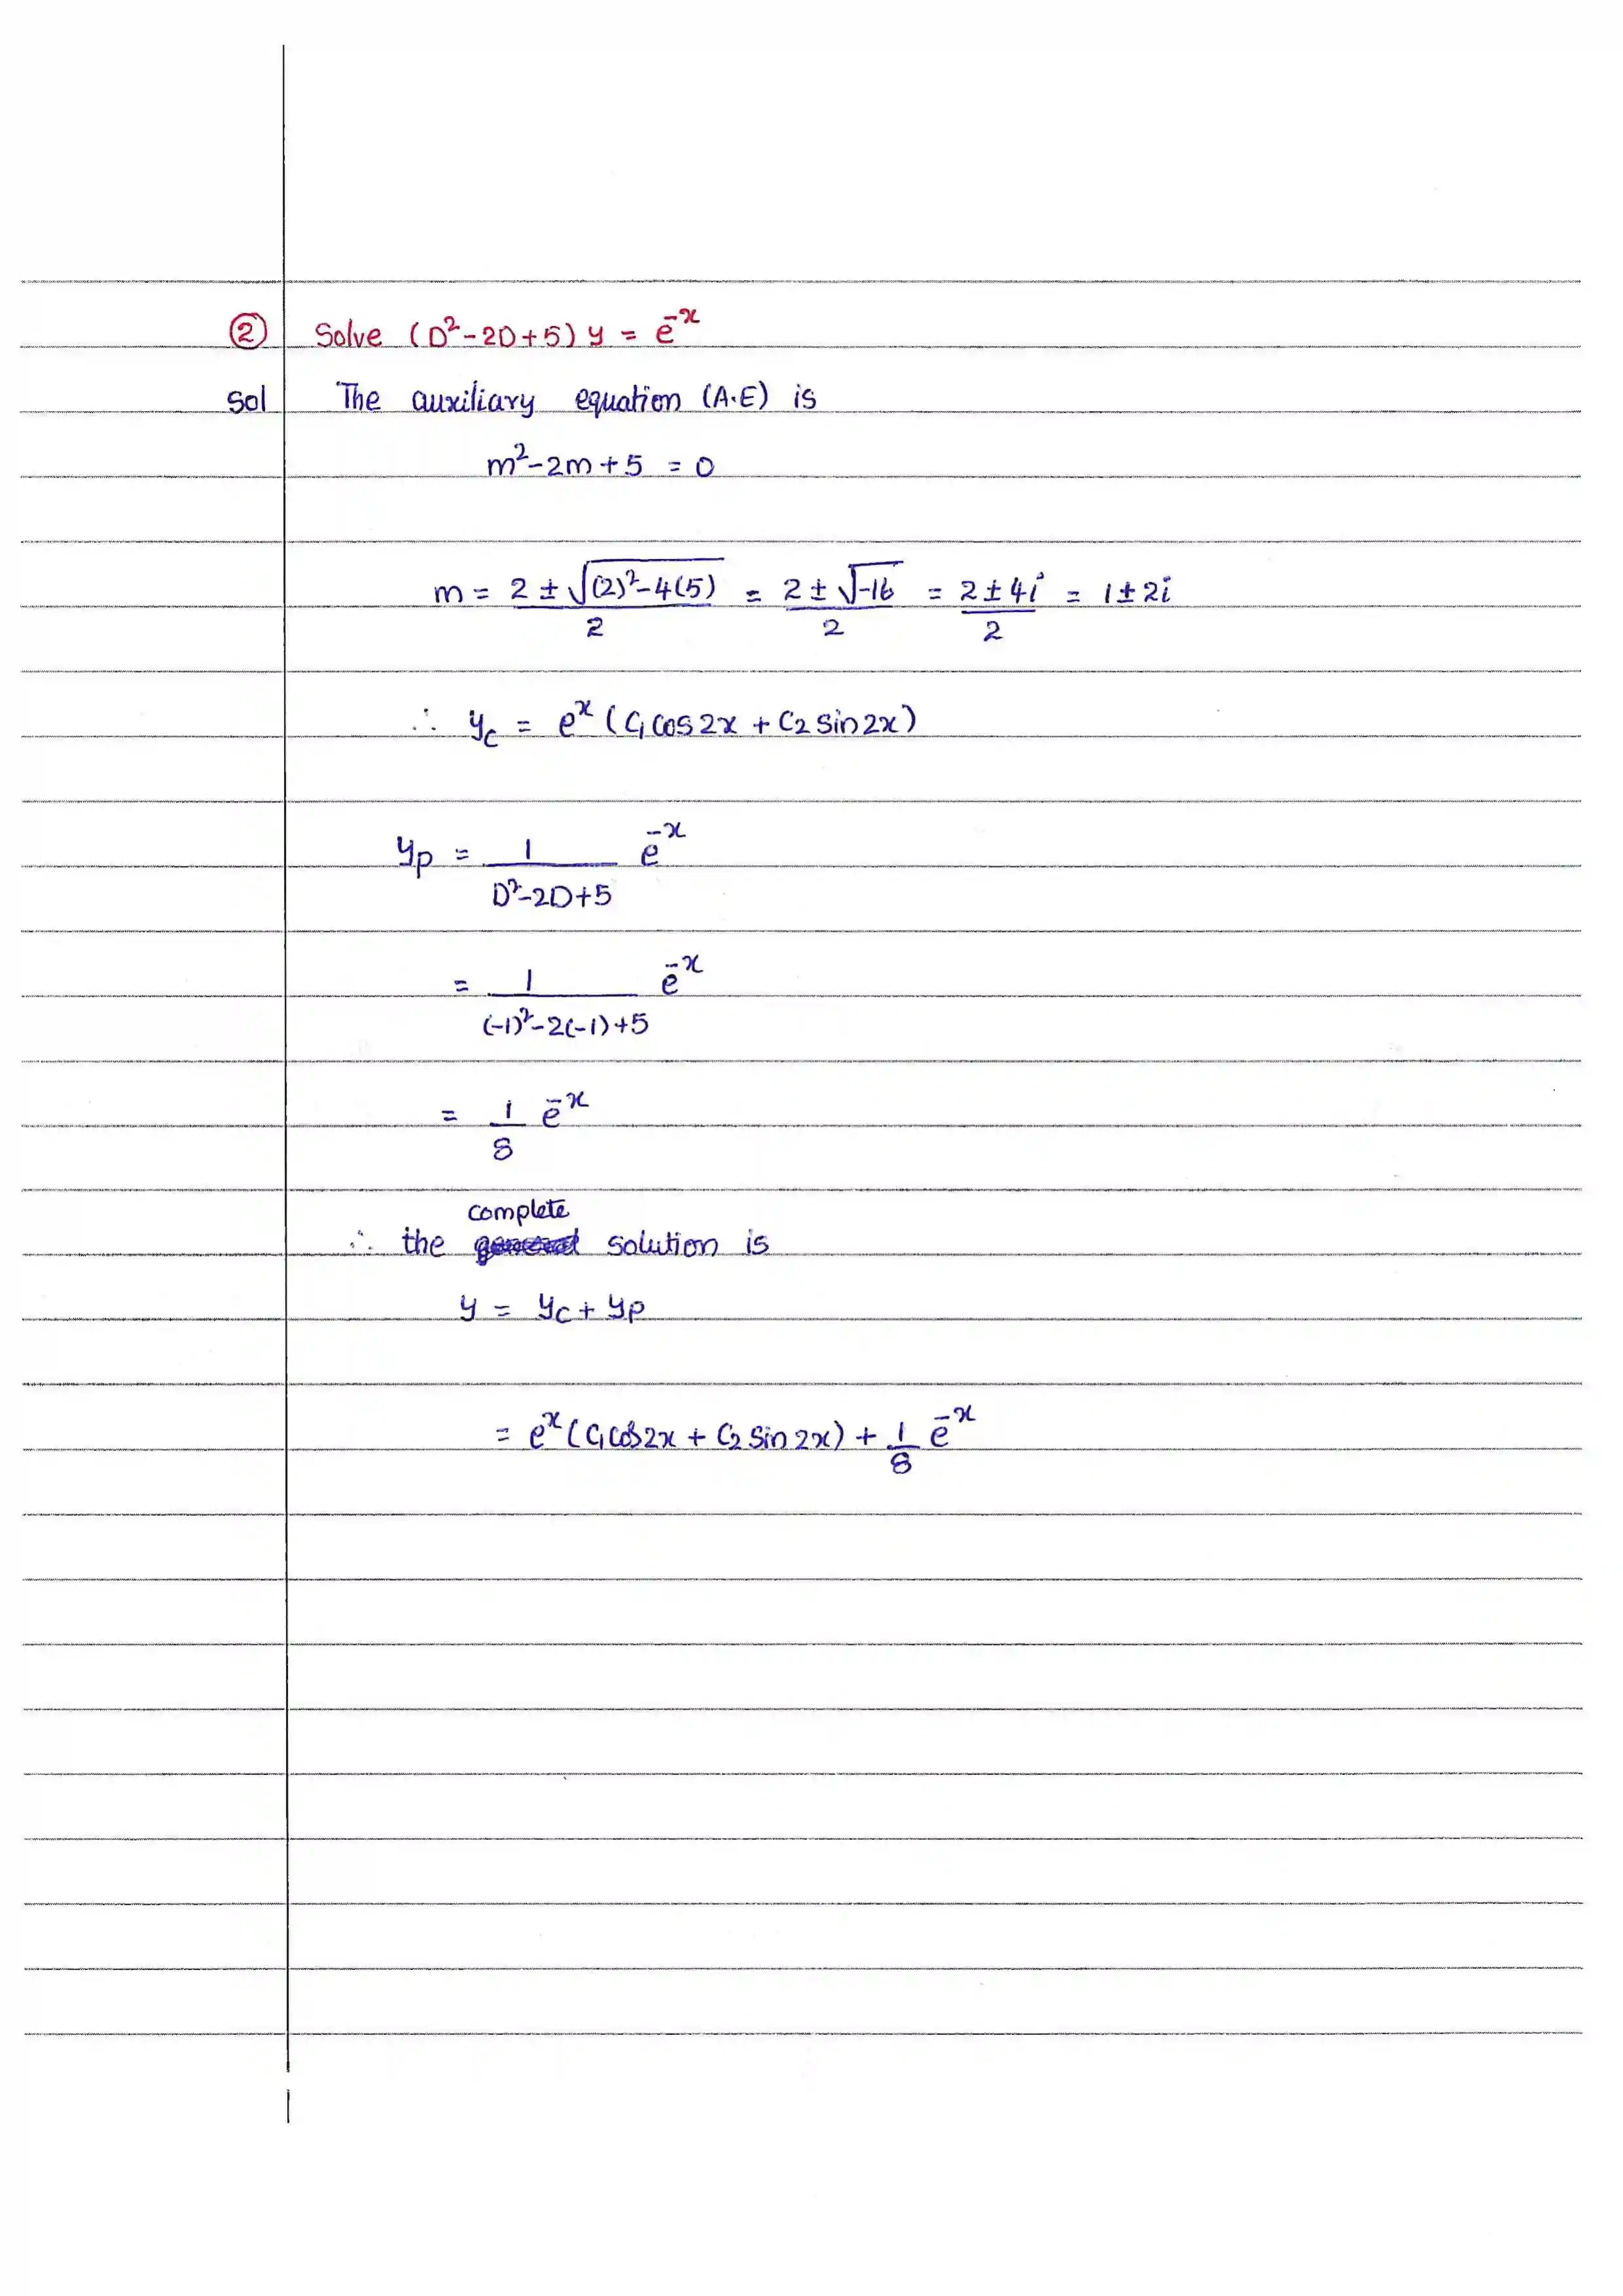 ② Solve (D²-2D+5) y = e^-x
Sol The auxiliary equation (A.E) is
m²-2m+5 = 0
m = (2 ± √((2)²-4(5)))/2 = (2 ± √-16)/2 = (2 ± 4i)/2 = 1 ± 2i
∴ y_c = e^x (C₁ cos 2x + C₂ sin 2x)
y_p = 1/(D²-2D+5) e^-x
= 1/((-1)²-2(-1)+5) e^-x
= 1/8 e^-x
complete
∴ the general solution is
y = y_c + y_p
= e^x (C₁ cos 2x + C₂ sin 2x) + 1/8 e^-x